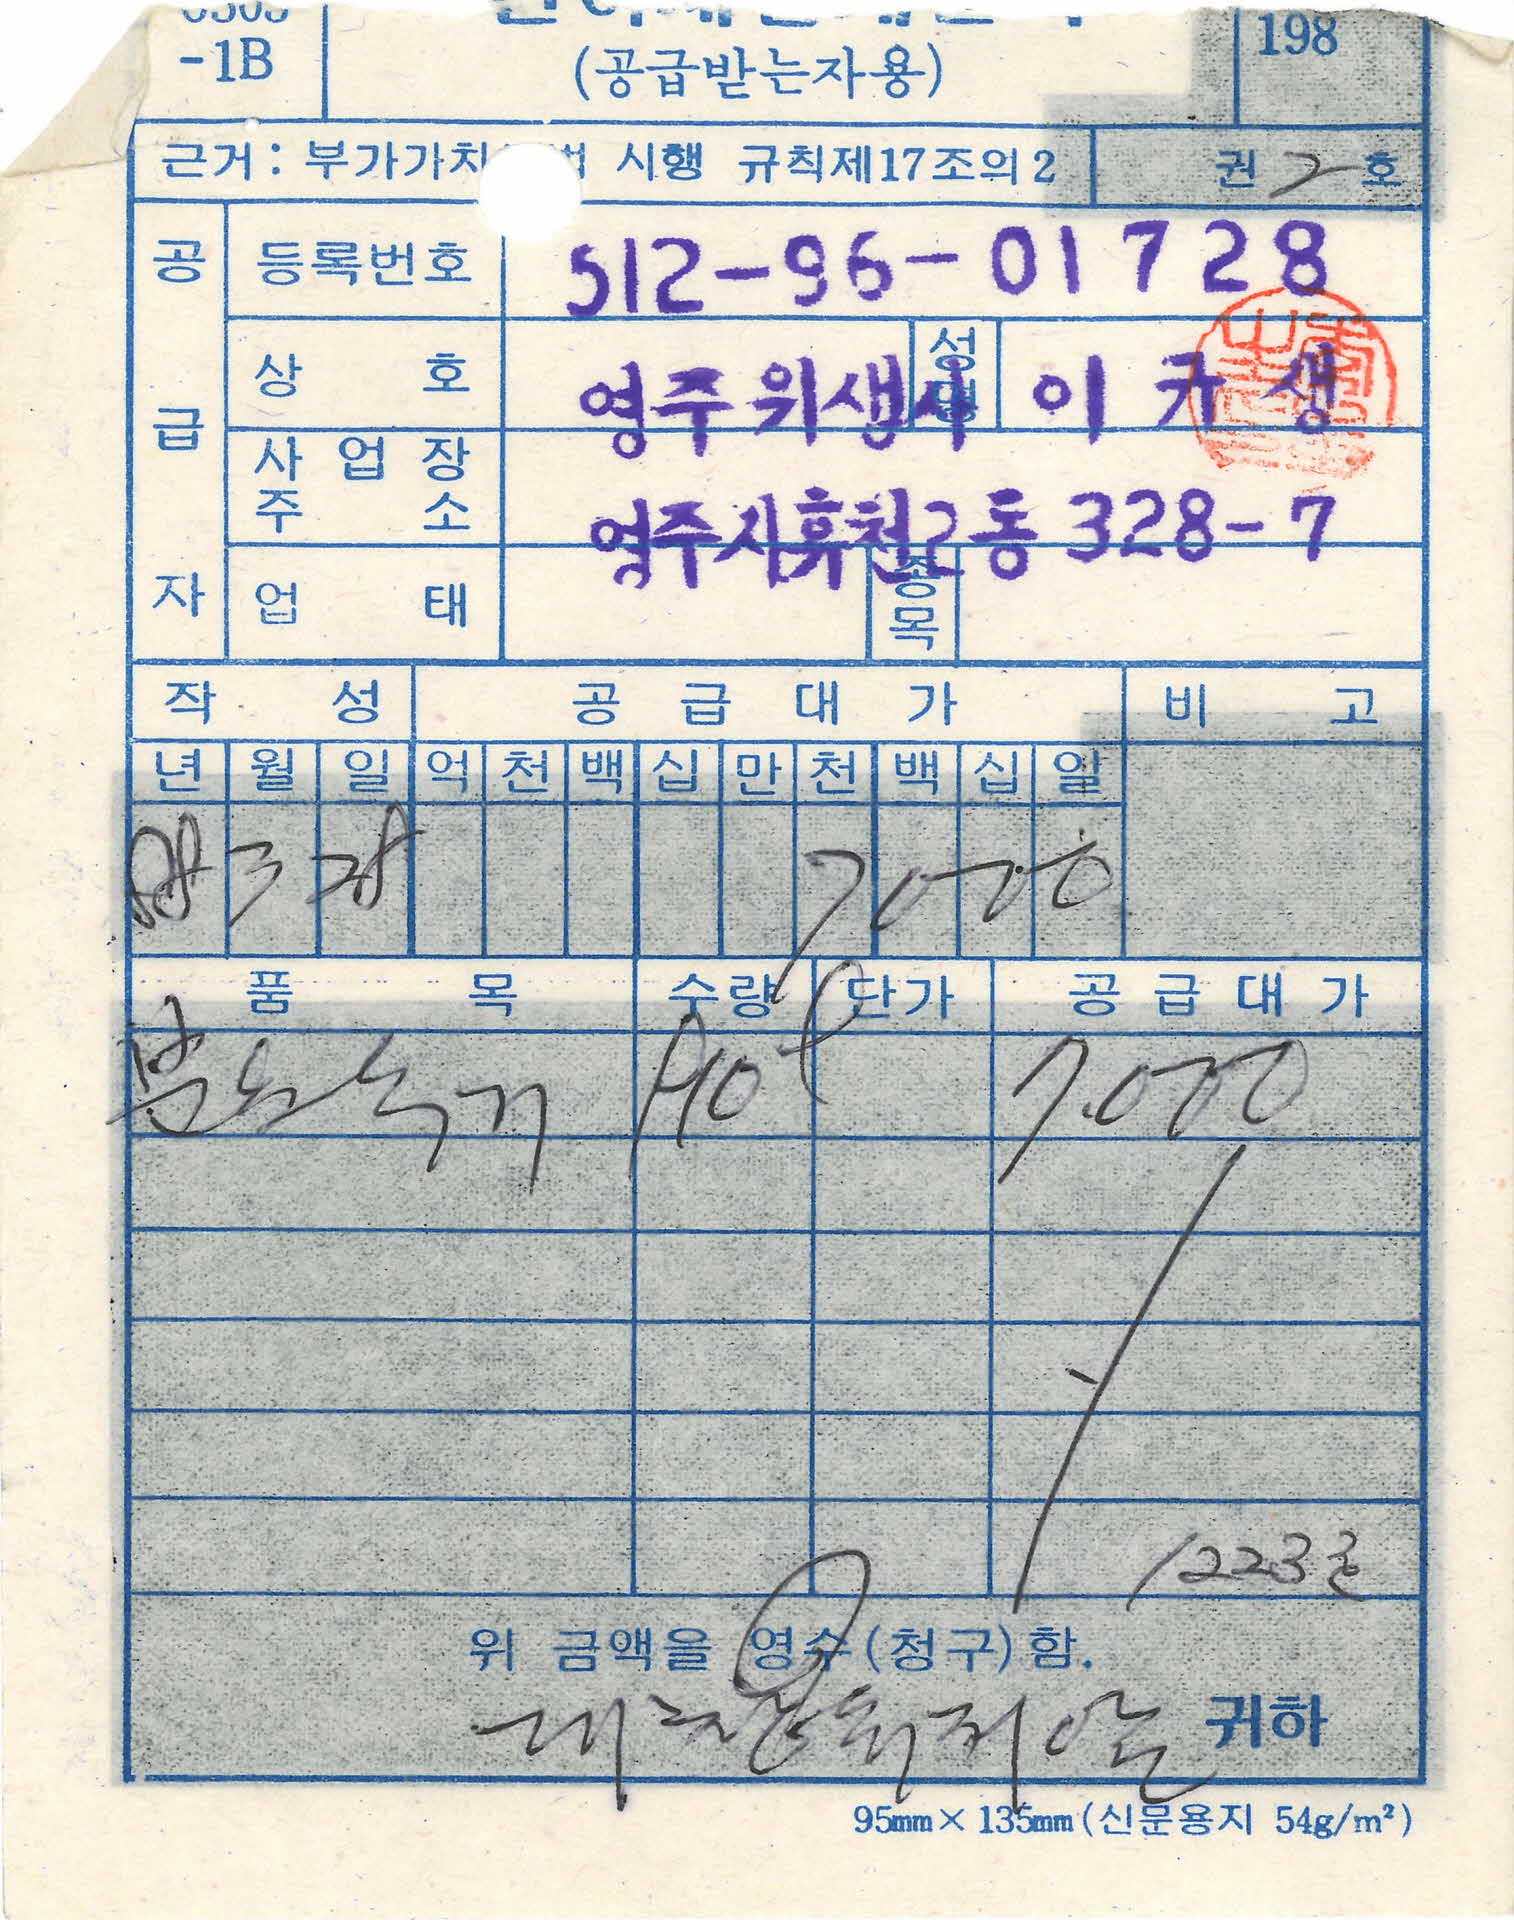 -1B
198
(공급받는자용)
근거: 부가가치 시행 규칙제17조의2 권 2 호
공급자
등록번호 512-96-01728
상호 영주위생사 성명 이규생
사업장주소 영주시휴천2동 328-7
업태 종목
작성 공급대가 비고
년 월 일 억 천 백 십 만 천 백 십 일
88 3 28 7000
품목 수량 단가 공급대가
분뇨수거 140ℓ 7,000
1223호
위 금액을 영수(청구)함.
귀하
95mm×135mm(신문용지 54g/m²)